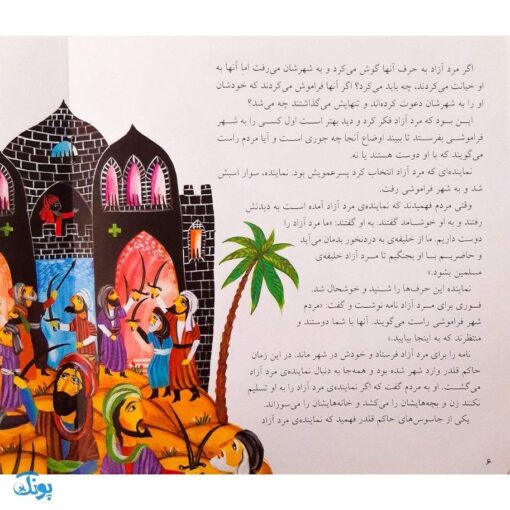 اگر مرد آزاد به حرف آنها گوش می‌کرد و به شهرشان می‌رفت اما آنها به
او خیانت می‌کردند، چه باید می‌کرد؟ اگر آنها فراموش می‌کردند که خودشان
او را به شهرشان دعوت کرده‌اند و تنهایش می‌گذاشتند چه می‌شد؟
این بود که مرد آزاد فکر کرد و دید بهتر است اول کسی را به شهر
فراموشی بفرستد تا ببیند اوضاع آنجا چه جوری است و آیا مردم راست
می‌گویند که با او دوست هستند یا نه.
نماینده‌ای که مرد آزاد انتخاب کرد پسرعمویش بود. نماینده، سوار اسبش
شد و به شهر فراموشی رفت.
وقتی مردم فهمیدند که نماینده‌ی مرد آزاد آمده است به دیدنش
رفتند و به او خوشامد گفتند. به او گفتند: «ما مرد آزاد را
دوست داریم. ما از خلیفه‌ی به دردنخور بدمان می‌آید
و حاضریم با او بجنگیم تا مرد آزاد خلیفه‌ی
مسلمین بشود.»
نماینده این حرف‌ها را شنید و خوشحال شد.
فوری برای مرد آزاد نامه نوشت و گفت: «مردم
شهر فراموشی راست می‌گویند. آنها با شما دوستند و
منتظرند که به اینجا بیایید.»
نامه را برای مرد آزاد فرستاد و خودش در شهر ماند. در این زمان
حاکم قلدر وارد شهر شده بود و همه‌جا به دنبال نماینده‌ی مرد آزاد
می‌گشت. او به مردم گفت که اگر نماینده‌ی مرد آزاد را به او تسلیم
نکنند زن و بچه‌هایشان را می‌کشد و خانه‌هایشان را می‌سوزاند.
یکی از جاسوس‌های حاکم قلدر فهمید که نماینده‌ی مرد آزاد
۶
پونک